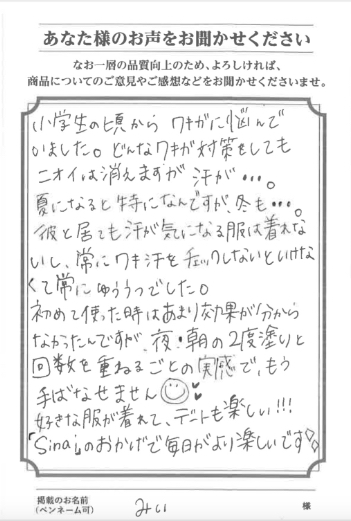 あなた様のお声をお聞かせください
なお一層の品質向上のため、よろしければ、
商品についてのご意見やご感想などをお聞かせくださいませ。
小学生の頃からワキガに悩んで
いました。どんなワキガ対策をしても
ニオイは消えますが汗が・・・。
夏になると特になんですが、冬も・・・。
彼と居ても汗が気になる服は着れな
いし、常にワキ汗をチェックしないといけな
くて常にゆううつでした。
初めて使った時はあまり効果が分から
なかったんですが、夜・朝の2度塗りと
回数を重ねるごとの実感で、もう
手ばなせません
好きな服が着れて、デートも楽しい!!!
「Sina」のおかげで毎日がより楽しいです♡♡
掲載のお名前
(ペンネーム可)
みい
様